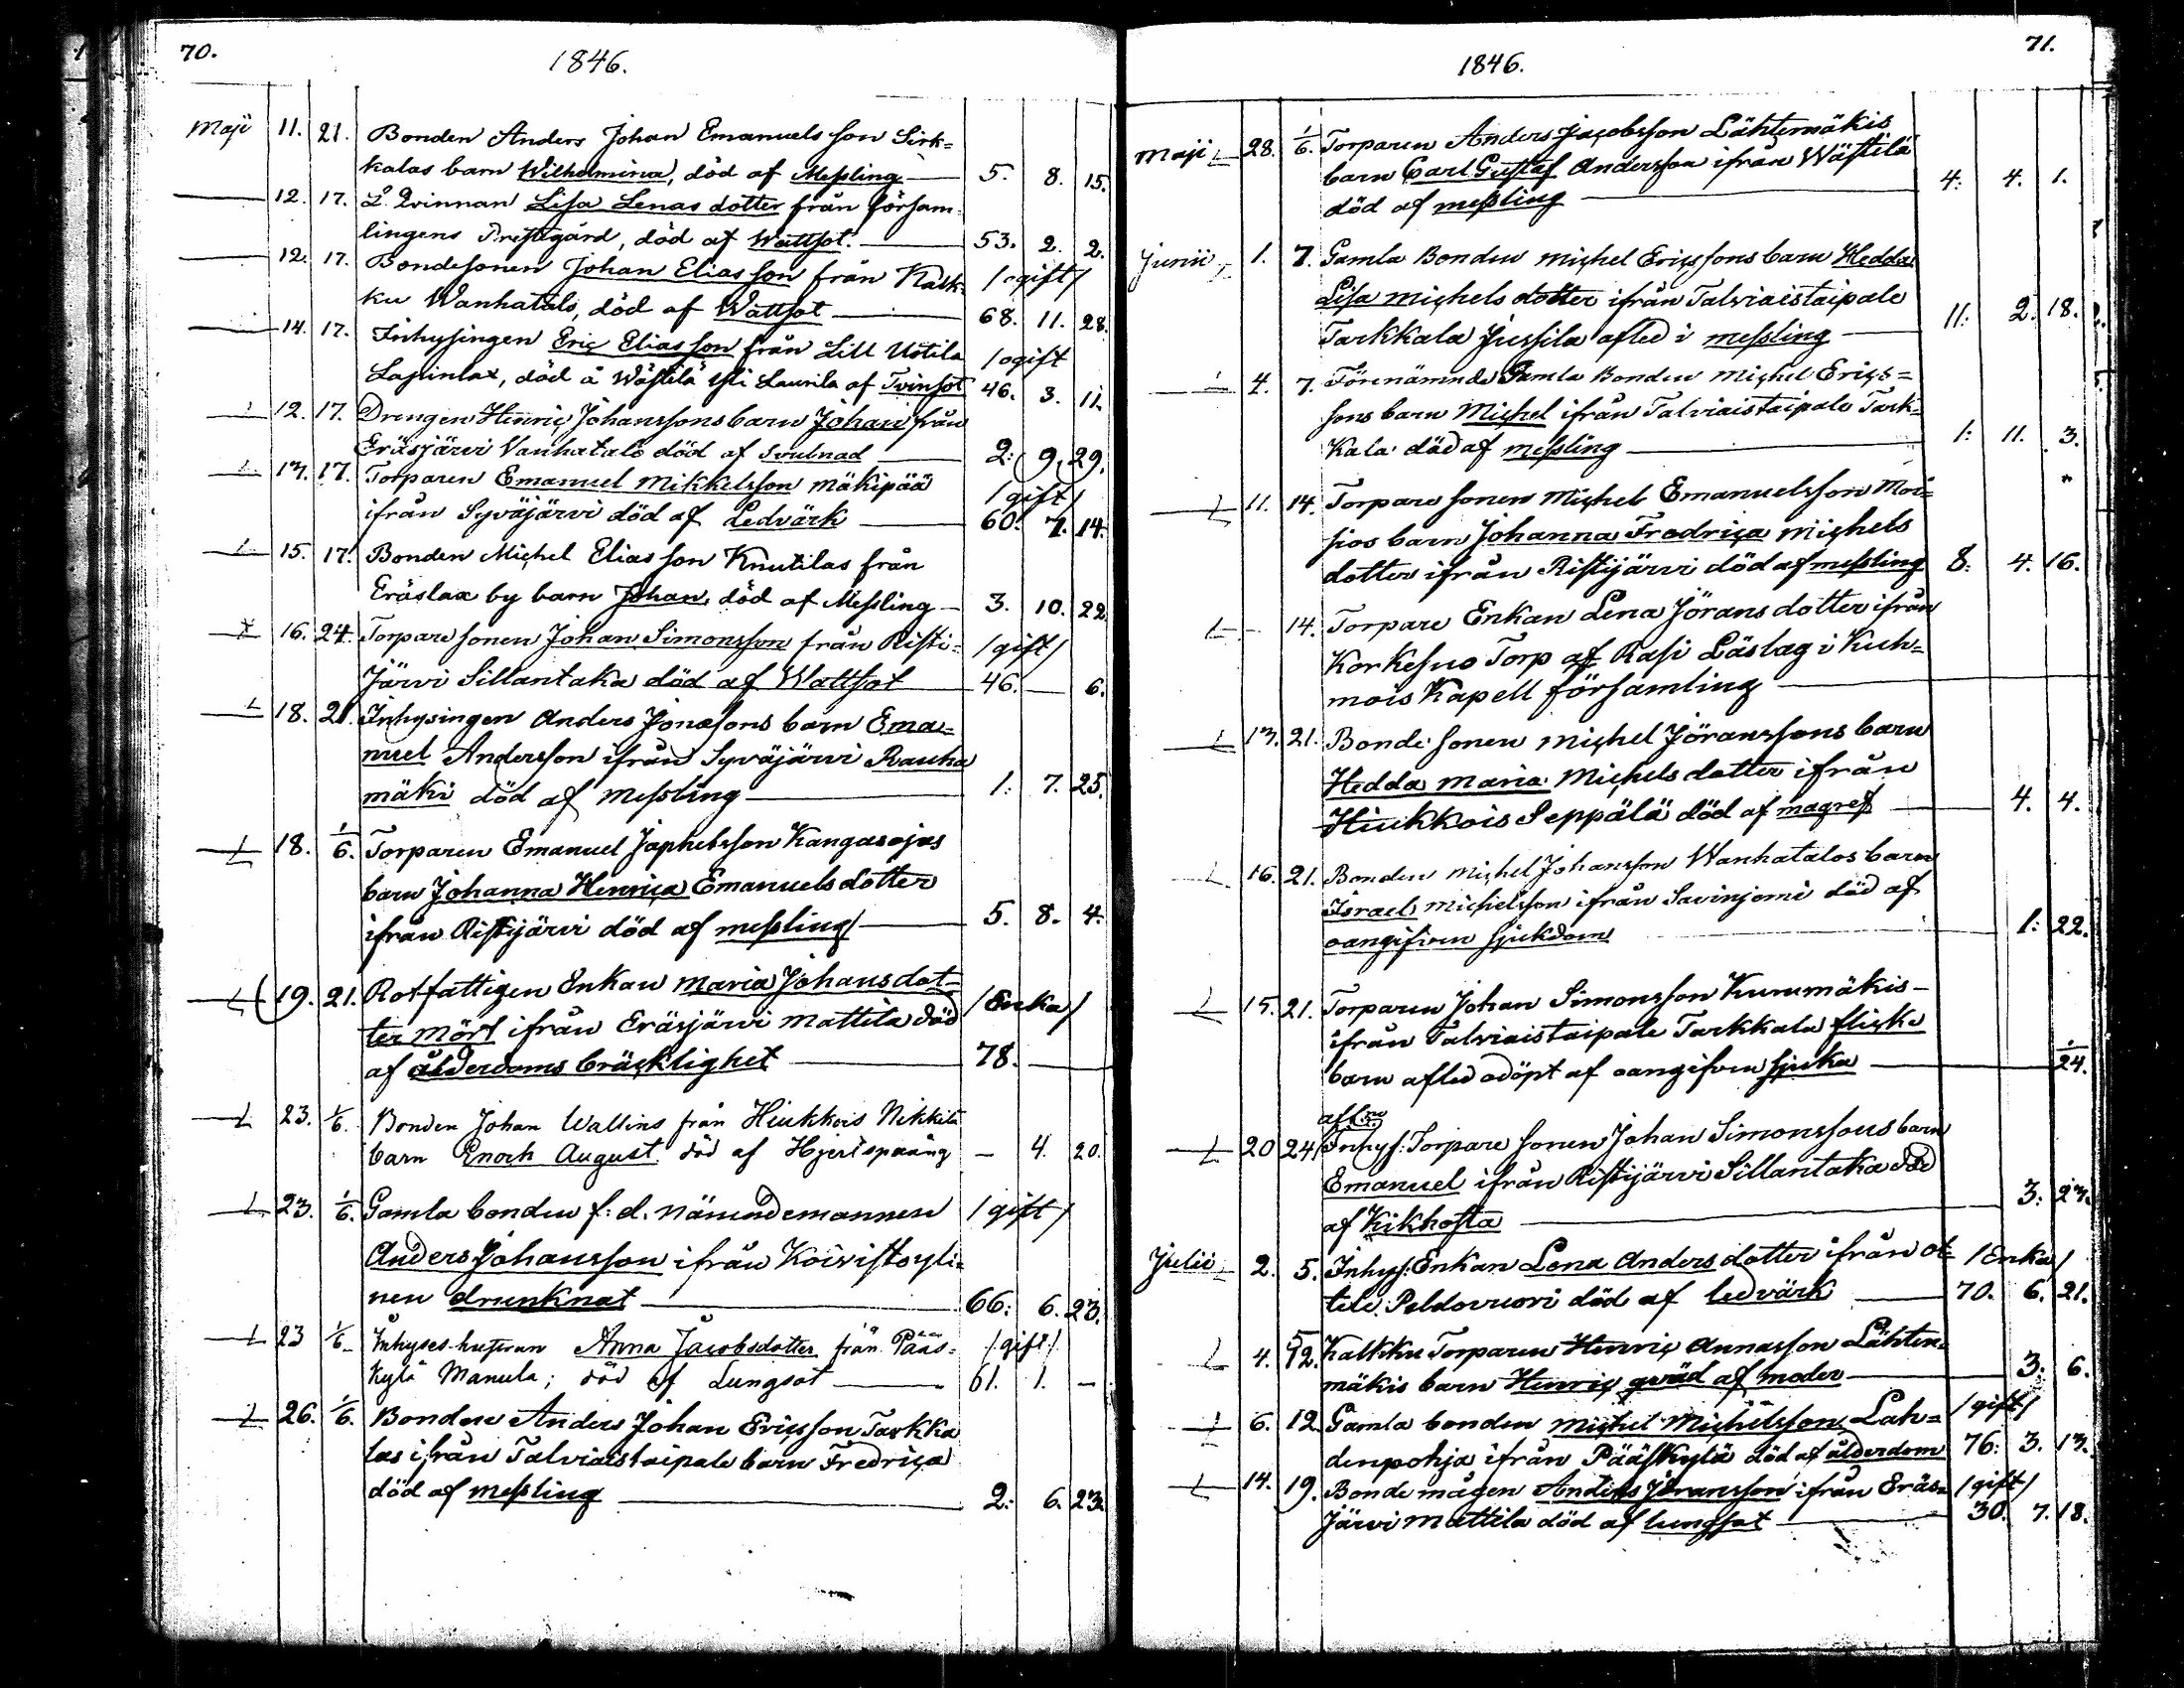 70.
1846.
Maji 11. 21. Bonden Anders Johan Emanuelsson Sirk=
kalas barn Wilhelmina, död af Messling 5. 8. 15.
12. 17. L. Qvinnan Lisa Lenas dotter från försam=
lingens Prestgård, död af Wattsot. 53. 2. 2.
12. 17. Bondesonen Johan Eliasson från Kask= /ogift/
ku Wanhatalo, död af Wattsot 68. 11. 28.
14. 17. Inhysingen Eric Eliasson från Lill Uotila /ogift
Lapinlax, död å Wästilä Yli Laurila af Tvinsot 46. 3. 11.
12. 17. Drengen Henric Johanssons barn Johan från
Eräsjärvi Vanhatalo död af Svulnad 2. 9. 29.
13. 17. Torparen Emanuel Mikkelsson Mäkipää /gift/
ifrån Syväjärvi död af Ledvärk 60. 7. 14.
15. 17. Bonden Michel Eliasson Knutilas från
Eräslax by barn Johan, död af Messling 3. 10. 22.
16. 24. Torpare sonen Johan Simonsson från Risti= /gift/
Järvi Sillantaka död af Wattsot 46. — 6.
18. 21. Inhysingen Anders Jonassons barn Ema=
nuel Andersson ifrån Syväjärvi Rauha
mäki död af Messling 1. 7. 25.
18. 1/6. Torparen Emanuel Japhetsson Kangasojas
barn Johanna Henrica Emanuels dotter
ifrån Ristijärvi död af messling 5. 8. 4.
19. 21. Rotfattigen Enkan Maria Johansdot= /Enka/
ter Mört ifrån Eräsjärvi Mattila död
af ålderdoms bräcklighet 78.
23. 1/6. Bonden Johan Wallins från Hiukkois Nikkilä
barn Enoch August död af Hjertspräng — 4. 20.
23. 1/6. Gamla bonden f: d. Nämndemannen /gift/
Anders Johansson ifrån Koivisto yli=
nen drunknat 66. 6. 23.
23 1/6. Inhyses-hustrun Anna Jacobsdotter från Pääs= /gift/
kylä Manula; död af Lungsot 61. 1. —
26. 1/6. Bonden Anders Johan Ericsson Tarkka
las ifrån Talviaistaipale barn Fredrica
död af messling 2. 6. 23.
71.
1846.
Maji 28. 1/6. Torparen Anders Jacobsson Lähtemäkis
barn Carl Gustaf Andersson ifrån Wästilä
död af messling 4. 4. 1.
Junii 1. 7. Gamla Bonden Michel Ericssons barn Hedda
Lisa Michels dotter ifrån Talviaistaipale
Tarkkala Jussila afled i messling 11. 2. 18.
4. 7. Förenämnde Gamla Bonden Michel Erics=
sons barn Michel ifrån Talviaistaipale Tark=
kala död af messling 1. 11. 3.
11. 14. Torpare sonen Michel Emanuelsson Moi=
sios barn Johanna Fredrica Michels
dotter ifrån Ristijärvi död af messling 8. 4. 16.
14. Torpare Enkan Lena Jörans dotter ifrån
Korkesuo Torp af Rasi Läslag i Kuh=
mois Kapell församling
13. 21. Bonde sonen Michel Jöranssons barn
Hedda Maria Michels dotter ifrån
Hiukkois Seppälä död af magref 4. 4.
16. 21. Bonden Michel Johansson Wanhatalos barn
Israel Michelsson ifrån Savinjomi död af
oangifven sjukdom 1. 22.
15. 21. Torparen Johan Simonsson Kurumäkis
ifrån Talviaistaipale Tarkkala flicke
barn afled odöpt af oangifven sjuka 1/24.
20 24 Inhys: Torpare sonen Johan Simonssons barn
Emanuel ifrån Ristijärvi Sillantaka död
af Kikhosta 3. 23.
Julii 2. 5. Inhys: Enkan Lena Anders dotter ifrån ot= /Enka/
tele Peldovuori död af ledvärk 70. 6. 21.
4. 12. Kalkku Torparen Henric Annasson Lähten=
mäkis barn Henric qväd af moder 3. 6.
6. 12 Gamla bonden Michel Michelsson Lah= /gift/
denpohja ifrån Pääskylä död af ålderdom 76. 3. 13.
14. 19. Bonde mågen Anders Jöransson ifrån Eräs= /gift/
Järvi Mattila död af lungsot 30. 7. 18.